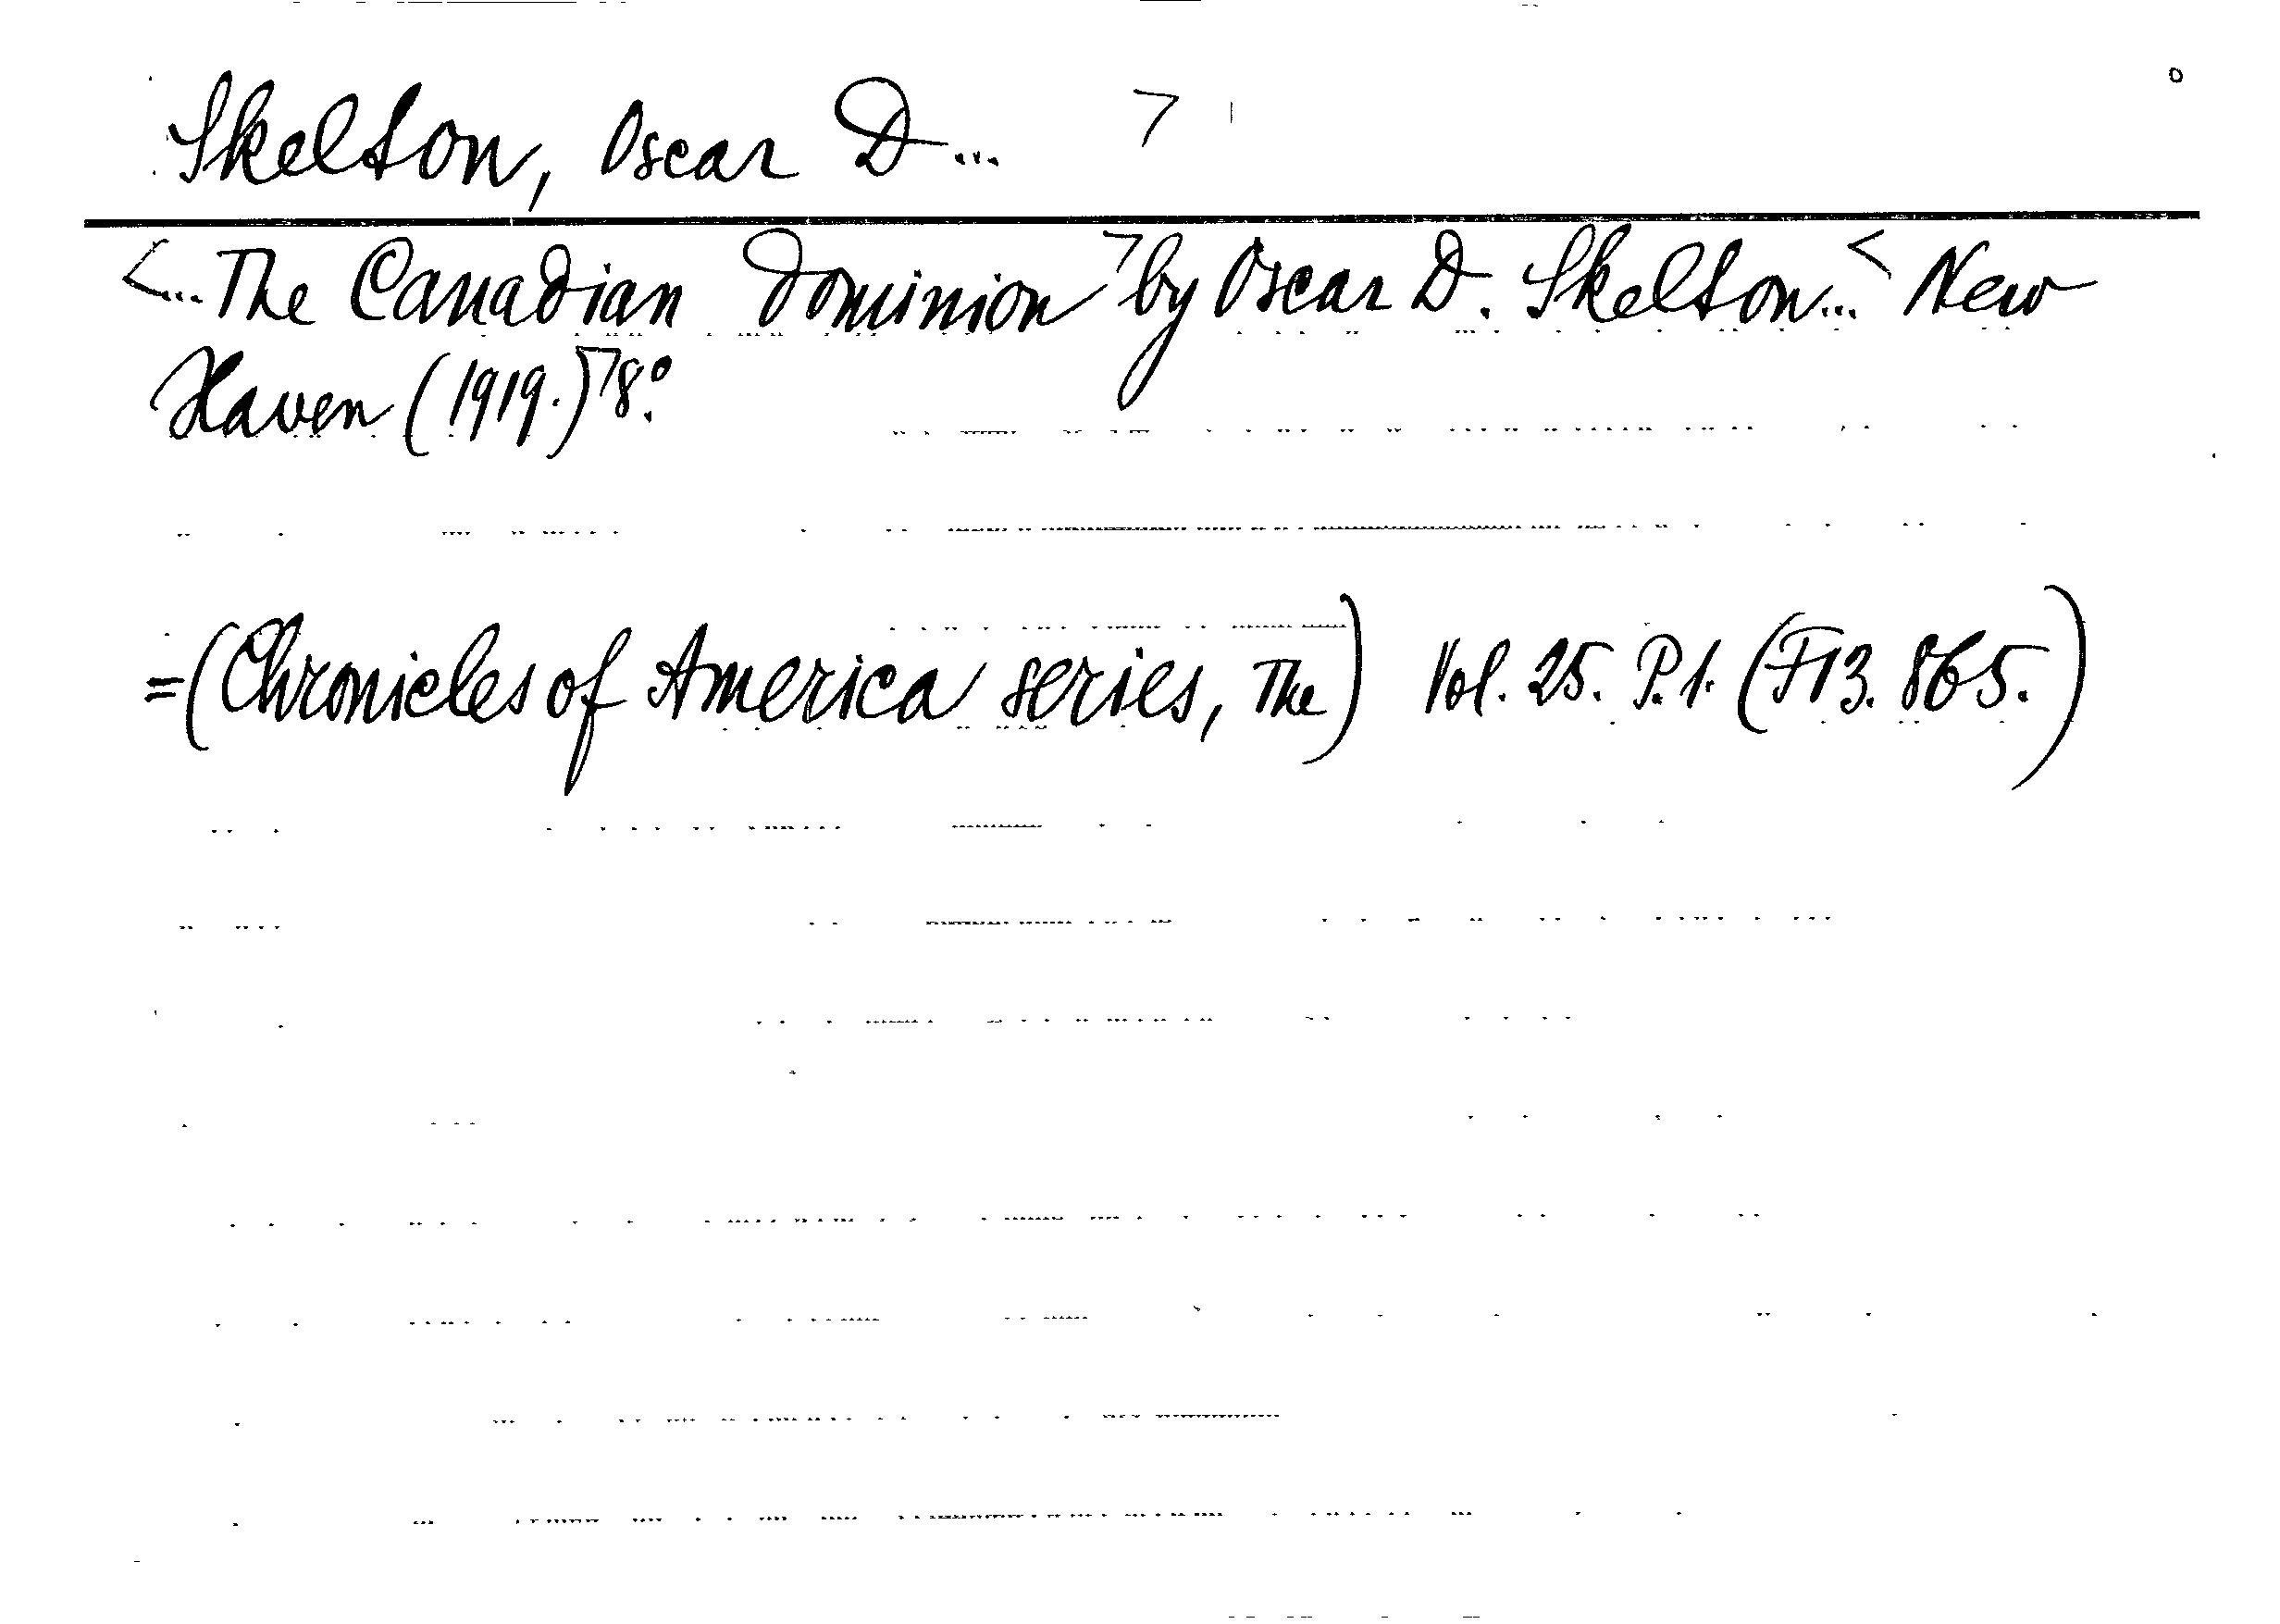 Skelton, Oscar D... >
<...The Canadian Dominion > by Oscar D. Skelton...< New
Haven (1919.)> 8°.
=(Chronicles of America series, The) Vol. 25. P.1. (F13. 865.)